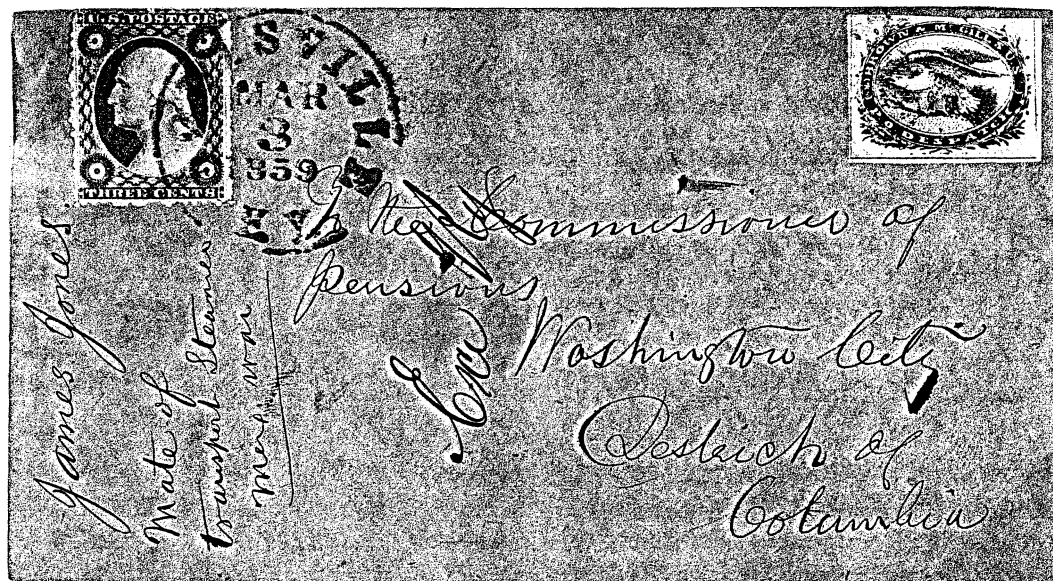 U.S. POSTAGE
THREE CENTS
SVILLE
MAR
3
1859
KY.
BROWN & McGILL'S
U.S.P.O. DESPATCH
To the Commissioner of
Pensions
Washington City
Destrich of
Columbia
James Jones
Mate of
transport Steamer
Mexican war